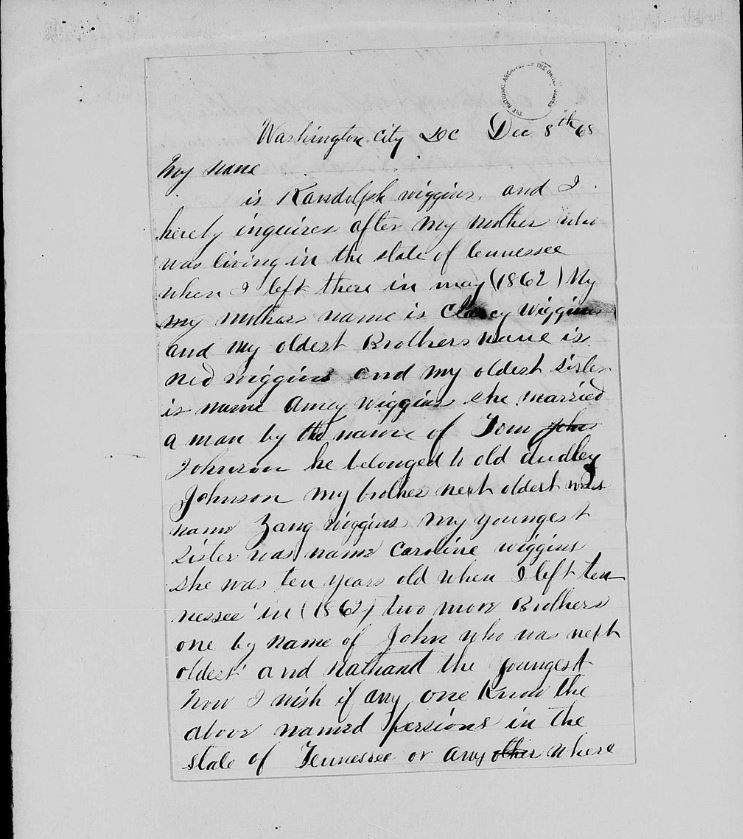 THE NATIONAL ARCHIVES OF THE UNITED STATES
Washington City DC Dec 8th 68
My name
is Randolph wiggins. and I
herely inquires after my mother who
was living in the state of tennessee
when I left there in may (1862) My
my mothers name is Clarcy Wiggins
and my oldest Brothers name is
Ned wiggins and my oldest sister
is name Amey wiggins she married
a man by the name of Tom John
Johnson he belonged to old dudley
Johnson my brother next oldest was
name Zang wiggins my youngest
Sister was name Caroline wiggins
she was ten years old when I left ten
nessee in (1862) two more Brothers
one by name of John who was next
oldest and Nathand the youngest
now I wish if any one know the
above named persions in the
state of Tennessee or any other where